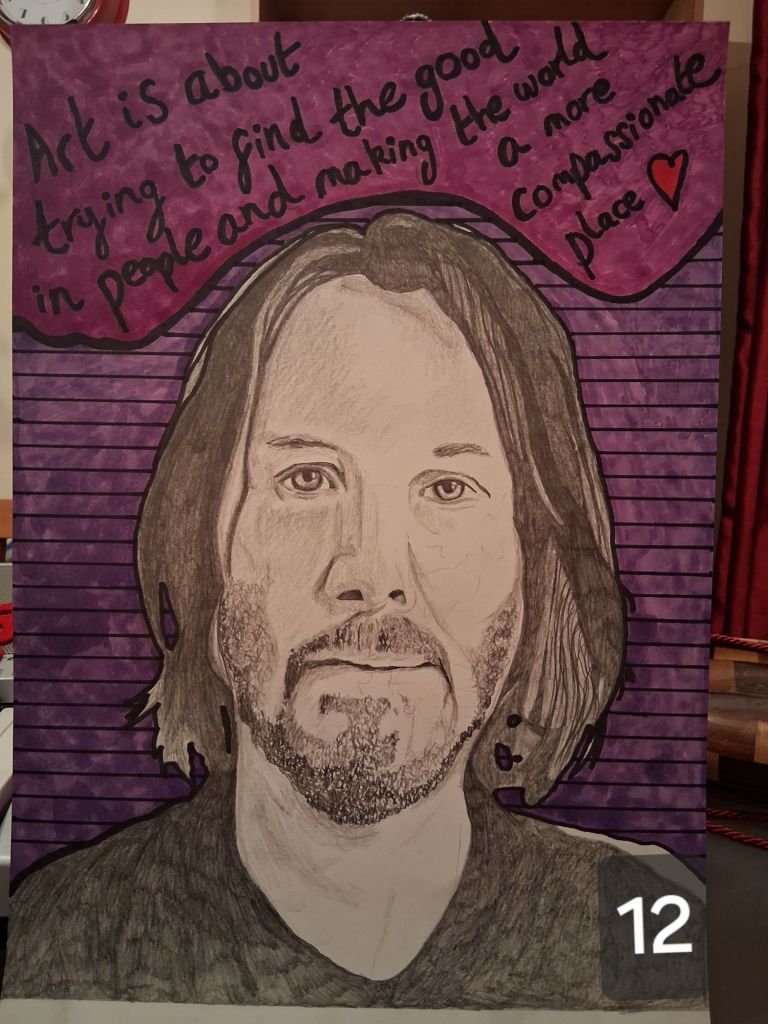 Art is about
trying to find the good
in people and making the world
a more
compassionate
place
12